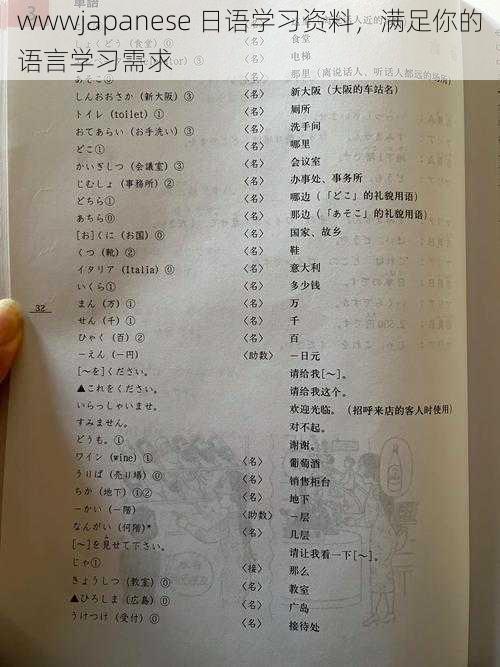 wwwjapanese 日语学习资料，满足你的
语言学习需求
しんおおさか（新大阪）③ 〈名〉 新大阪（大阪的车站名）
トイレ（toilet）① 〈名〉 厕所
おてあらい（お手洗い）③ 〈名〉 洗手间
どこ① 〈名〉 哪里
かいぎしつ（会議室）③ 〈名〉 会议室
じむしょ（事務所）② 〈名〉 办事处、事务所
どちら① 〈名〉 哪边（「どこ」的礼貌用语）
あちら⓪ 〈名〉 那边（「あそこ」的礼貌用语）
［お］くに（お国）⓪ 〈名〉 国家、故乡
くつ（靴）② 〈名〉 鞋
イタリア（Italia）⓪ 〈名〉 意大利
いくら① 〈名〉 多少钱
32
まん（万）① 〈名〉 万
せん（千）① 〈名〉 千
ひゃく（百）② 〈名〉 百
－えん（－円） 〈助数〉 －日元
［～を］ください。 请给我［～］。
▲これをください。 请给我这个。
いらっしゃいませ。 欢迎光临。（招呼来店的客人时使用）
すみません。 对不起。
どうも。① 谢谢。
ワイン（wine）① 〈名〉 葡萄酒
うりば（売り場）⓪ 〈名〉 销售柜台
ちか（地下）①② 〈名〉 地下
－かい（－階） 〈助数〉 －层
なんがい（何階）* 〈名〉 几层
［～］を見せて下さい。 请让我看一下［～］。
じゃ① 〈接〉 那么
きょうしつ（教室）⓪ 〈名〉 教室
▲ひろしま（広島）⓪ 〈名〉 广岛
うけつけ（受付）⓪ 〈名〉 接待处